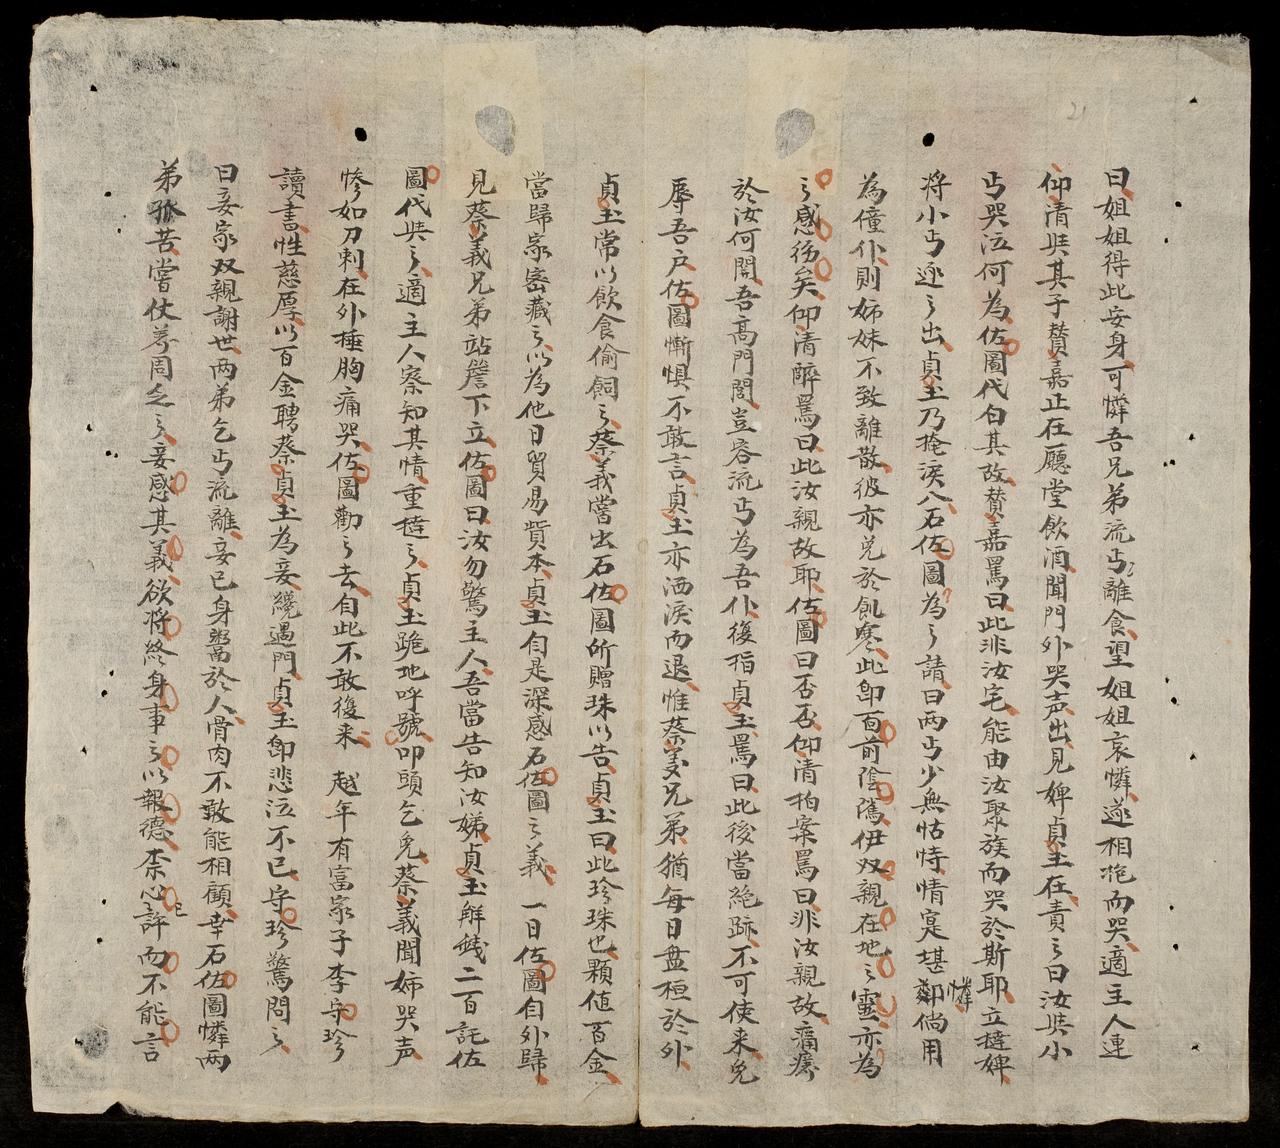 曰姐姐得此安身可憐吾兄弟流丐離食望姐姐哀憐遂相抱而哭適主人連
仰清與其子贊嘉正在廳堂飲酒聞門外哭声出見婢貞玉在責之曰汝與小
丐哭泣何為佐圖代白其故贊嘉罵曰此非汝宅能由汝聚族而哭於斯耶立撻婢
將小丐逐之出貞玉乃掩淚入石佐圖為之請曰兩丐少無怙恃情寔堪憐倘用
為僮仆則姊妹不致離散彼亦免於飢寒此即面前陰隲伊双親在地之靈亦為
之感彷矣仰清醉罵曰此汝親故耶佐圖曰否否仰清拍案罵曰非汝親故痛癢
於汝何関吾高門閥豈容流丐為吾仆復指貞玉罵曰此後當絕跡不可使来免
辱吾戶佐圖慚惧不敢言貞玉亦洒淚而退惟蔡義兄弟猶每日盘桓於外
貞玉常以飲食偷飼之蔡義嘗出石佐圖所贈珠以告貞玉曰此珍珠也顆值百金
當歸家密藏之以為他日貿易貲本貞玉自是深感石佐圖之義 一日佐圖自外歸
見蔡義兄弟站簷下立佐圖曰汝勿驚主人吾當告知汝姊貞玉解錢二百託佐
圖代與之適主人察知其情重撻之貞玉跪地呼號叩頭乞免蔡義聞姊哭声
慘如刀刺在外捶胸痛哭佐圖勸之去自此不敢復来 越年有富家子李守珍
讀書性慈厚以百金聘蔡貞玉為妾纔過門貞玉即悲泣不已守珍驚問之
曰妾家双親謝世两弟乞丐流離妾已身鬻於人骨肉不敢能相顧幸石佐圖憐两
弟孤苦嘗仗義周乏之妾感其義欲將終身事之以報德李心許而不能言
21